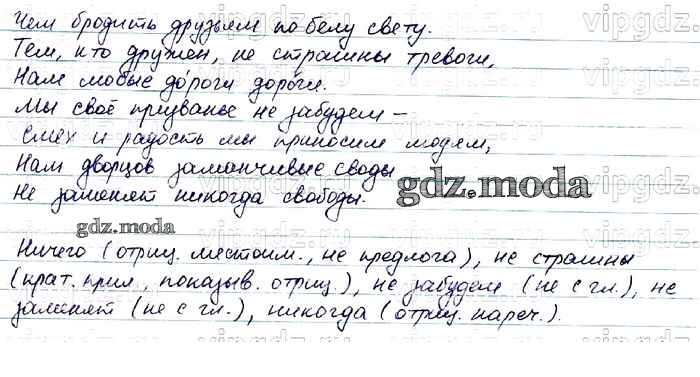 Чем бродить друзьям по белу свету.
Тем, кто дружен, не страшны тревоги,
Нам любые до́роги доро́ги.
Мы своё призванье не забудем –
Смех и радость мы приносим людям,
Нам дворцов заманчивые своды
Не заменят никогда свободы.
gdz.moda
gdz.moda
Ничего (отриц. местоим., не предлога), не страшны
(крат. прил., показыв. отриц.), не забудем (не с гл.), не
заменят (не с гл.), никогда (отриц. нареч.).
vipgdz.ru